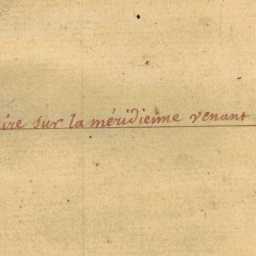 ire sur la méridienne venant